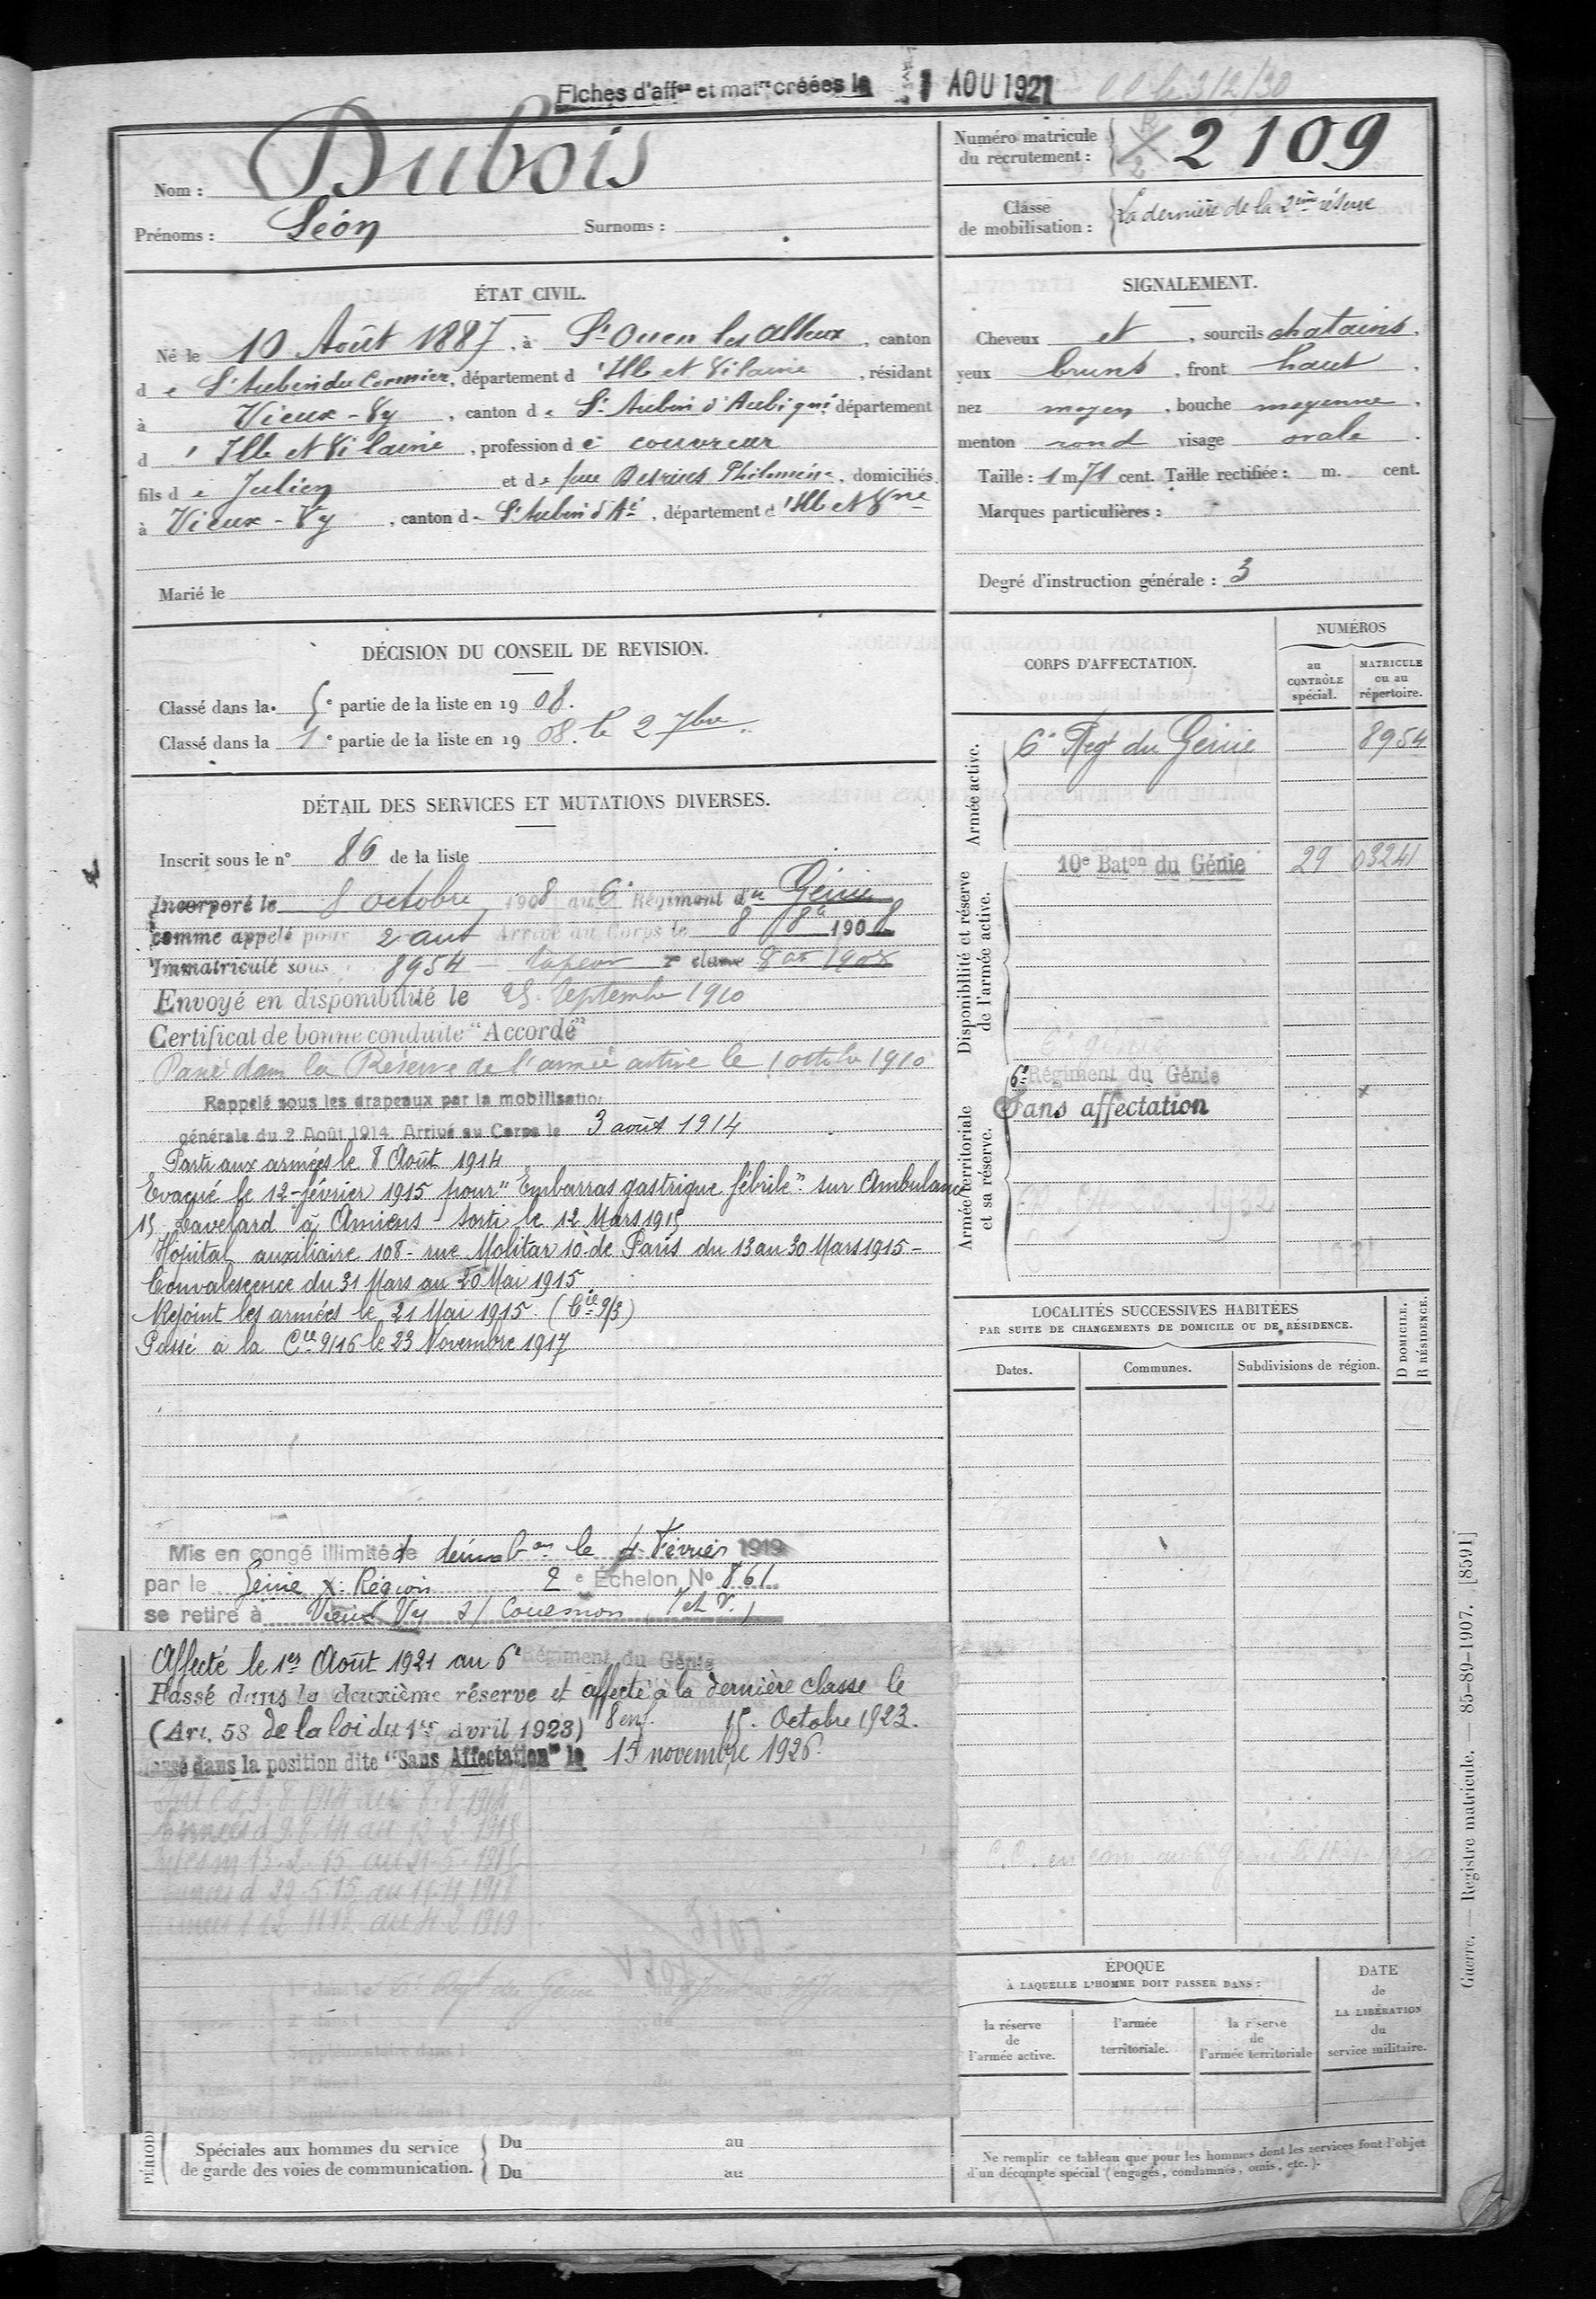 Fiches d'aff^on et mat^re créées le 1 AOU 1921
Nom : Dubois
Prénoms : Léon Surnoms :
Numéro matricule du recrutement : 2109
Classe de mobilisation : La dernière de la 2ème réserve
ÉTAT CIVIL.
Né le 10 Août 1887, à St Ouen les Alleux, canton
de St Aubin du Cormier, département d'Ille et Vilaine, résidant
à Vieux-Vy, canton de St Aubin d'Aubigné, département
d'Ille et Vilaine, profession de couvreur
fils de Julien et de feue Philomène, domiciliés
à Vieux-Vy, canton de St Aubin d'Aé, département d'Ille et Vne
Marié le
SIGNALEMENT.
Cheveux et, sourcils chatains,
yeux bruns, front haut,
nez moyen, bouche moyenne,
menton rond visage ovale.
Taille : 1 m 71 cent. Taille rectifiée : m. cent.
Marques particulières :
Degré d'instruction générale : 3
DÉCISION DU CONSEIL DE REVISION.
Classé dans la 5e partie de la liste en 1908.
Classé dans la 1e partie de la liste en 1908. le 2 7bre.
DÉTAIL DES SERVICES ET MUTATIONS DIVERSES.
Inscrit sous le n° 86 de la liste
Incorporé le 8 octobre 1908 au 6e Régiment du Génie
comme appelé pour 2 ans Arrivé au Corps le 8 8bre 1908
Immatriculé sous 8954 sapeur 2e classe 8 8bre 1908
Envoyé en disponibilité le 25 Septembre 1910
Certificat de bonne conduite "Accordé"
Passé dans la Réserve de l'armée active le 1 octobre 1910
Rappelé sous les drapeaux par la mobilisation
générale du 2 Août 1914 Arrivé au Corps le 3 août 1914
Parti aux armées le 8 Août 1914
Evacué le 12 février 1915 pour "Embarras gastrique fébrile" sur Ambulance
15 à Amiens - Sorti le 12 Mars 1915
Hopital auxiliaire 108 - rue Molitar 10 de Paris du 13 au 30 Mars 1915 -
Convalescence du 31 Mars au 20 Mai 1915
Rejoint les armées le 21 Mai 1915. (Cie 9/3)
Passé à la Cie 9/16 le 23 Novembre 1917
Mis en congé illimité de démobon le 4 Février 1919
par le Génie X: Région 2e Echelon No 861
se retire à Vieux Vy s/ Couesnon (I et V.)
Affecté le 1er Août 1921 au 6e Régiment du Génie
Passé dans la deuxième réserve et affecté à la dernière classe le
(Art. 58 de la loi du 1er avril 1923) 8 enf. 15. Octobre 1923.
Passé dans la position dite "Sans Affectation" le 15 novembre 1926.
Spéciales aux hommes du service de garde des voies de communication.
Du au
Du au
CORPS D'AFFECTATION.
NUMÉROS
au CONTRÔLE spécial.
MATRICULE ou au répertoire.
Armée active.
6e Regt du Génie 8954
Disponibilité et réserve de l'armée active.
10e Baton du Génie 29 03241
Armée territoriale et sa réserve.
6e Régiment du Génie
Sans affectation
LOCALITÉS SUCCESSIVES HABITÉES
PAR SUITE DE CHANGEMENTS DE DOMICILE OU DE RÉSIDENCE.
Dates. Communes. Subdivisions de région. D DOMICILE. R RÉSIDENCE.
ÉPOQUE
À LAQUELLE L'HOMME DOIT PASSER DANS :
la réserve de l'armée active.
l'armée territoriale.
la réserve de l'armée territoriale
DATE de LA LIBÉRATION du service militaire.
Ne remplir ce tableau que pour les hommes dont les services font l'objet
d'un décompte spécial (engagés, condamnés, omis, etc.).
Guerre. — Registre matricule. — 85-89-1907. [8591]